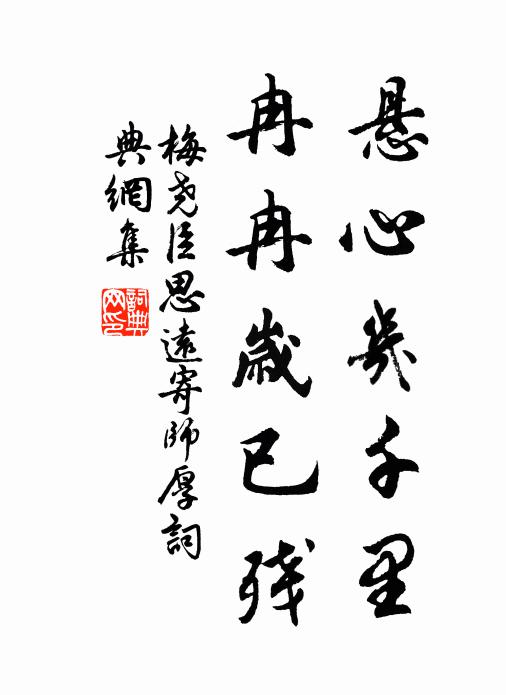 悬心幾千里
冉冉歲已残
梅尧臣思遠寄師厚詞
典網集
詞典
网印